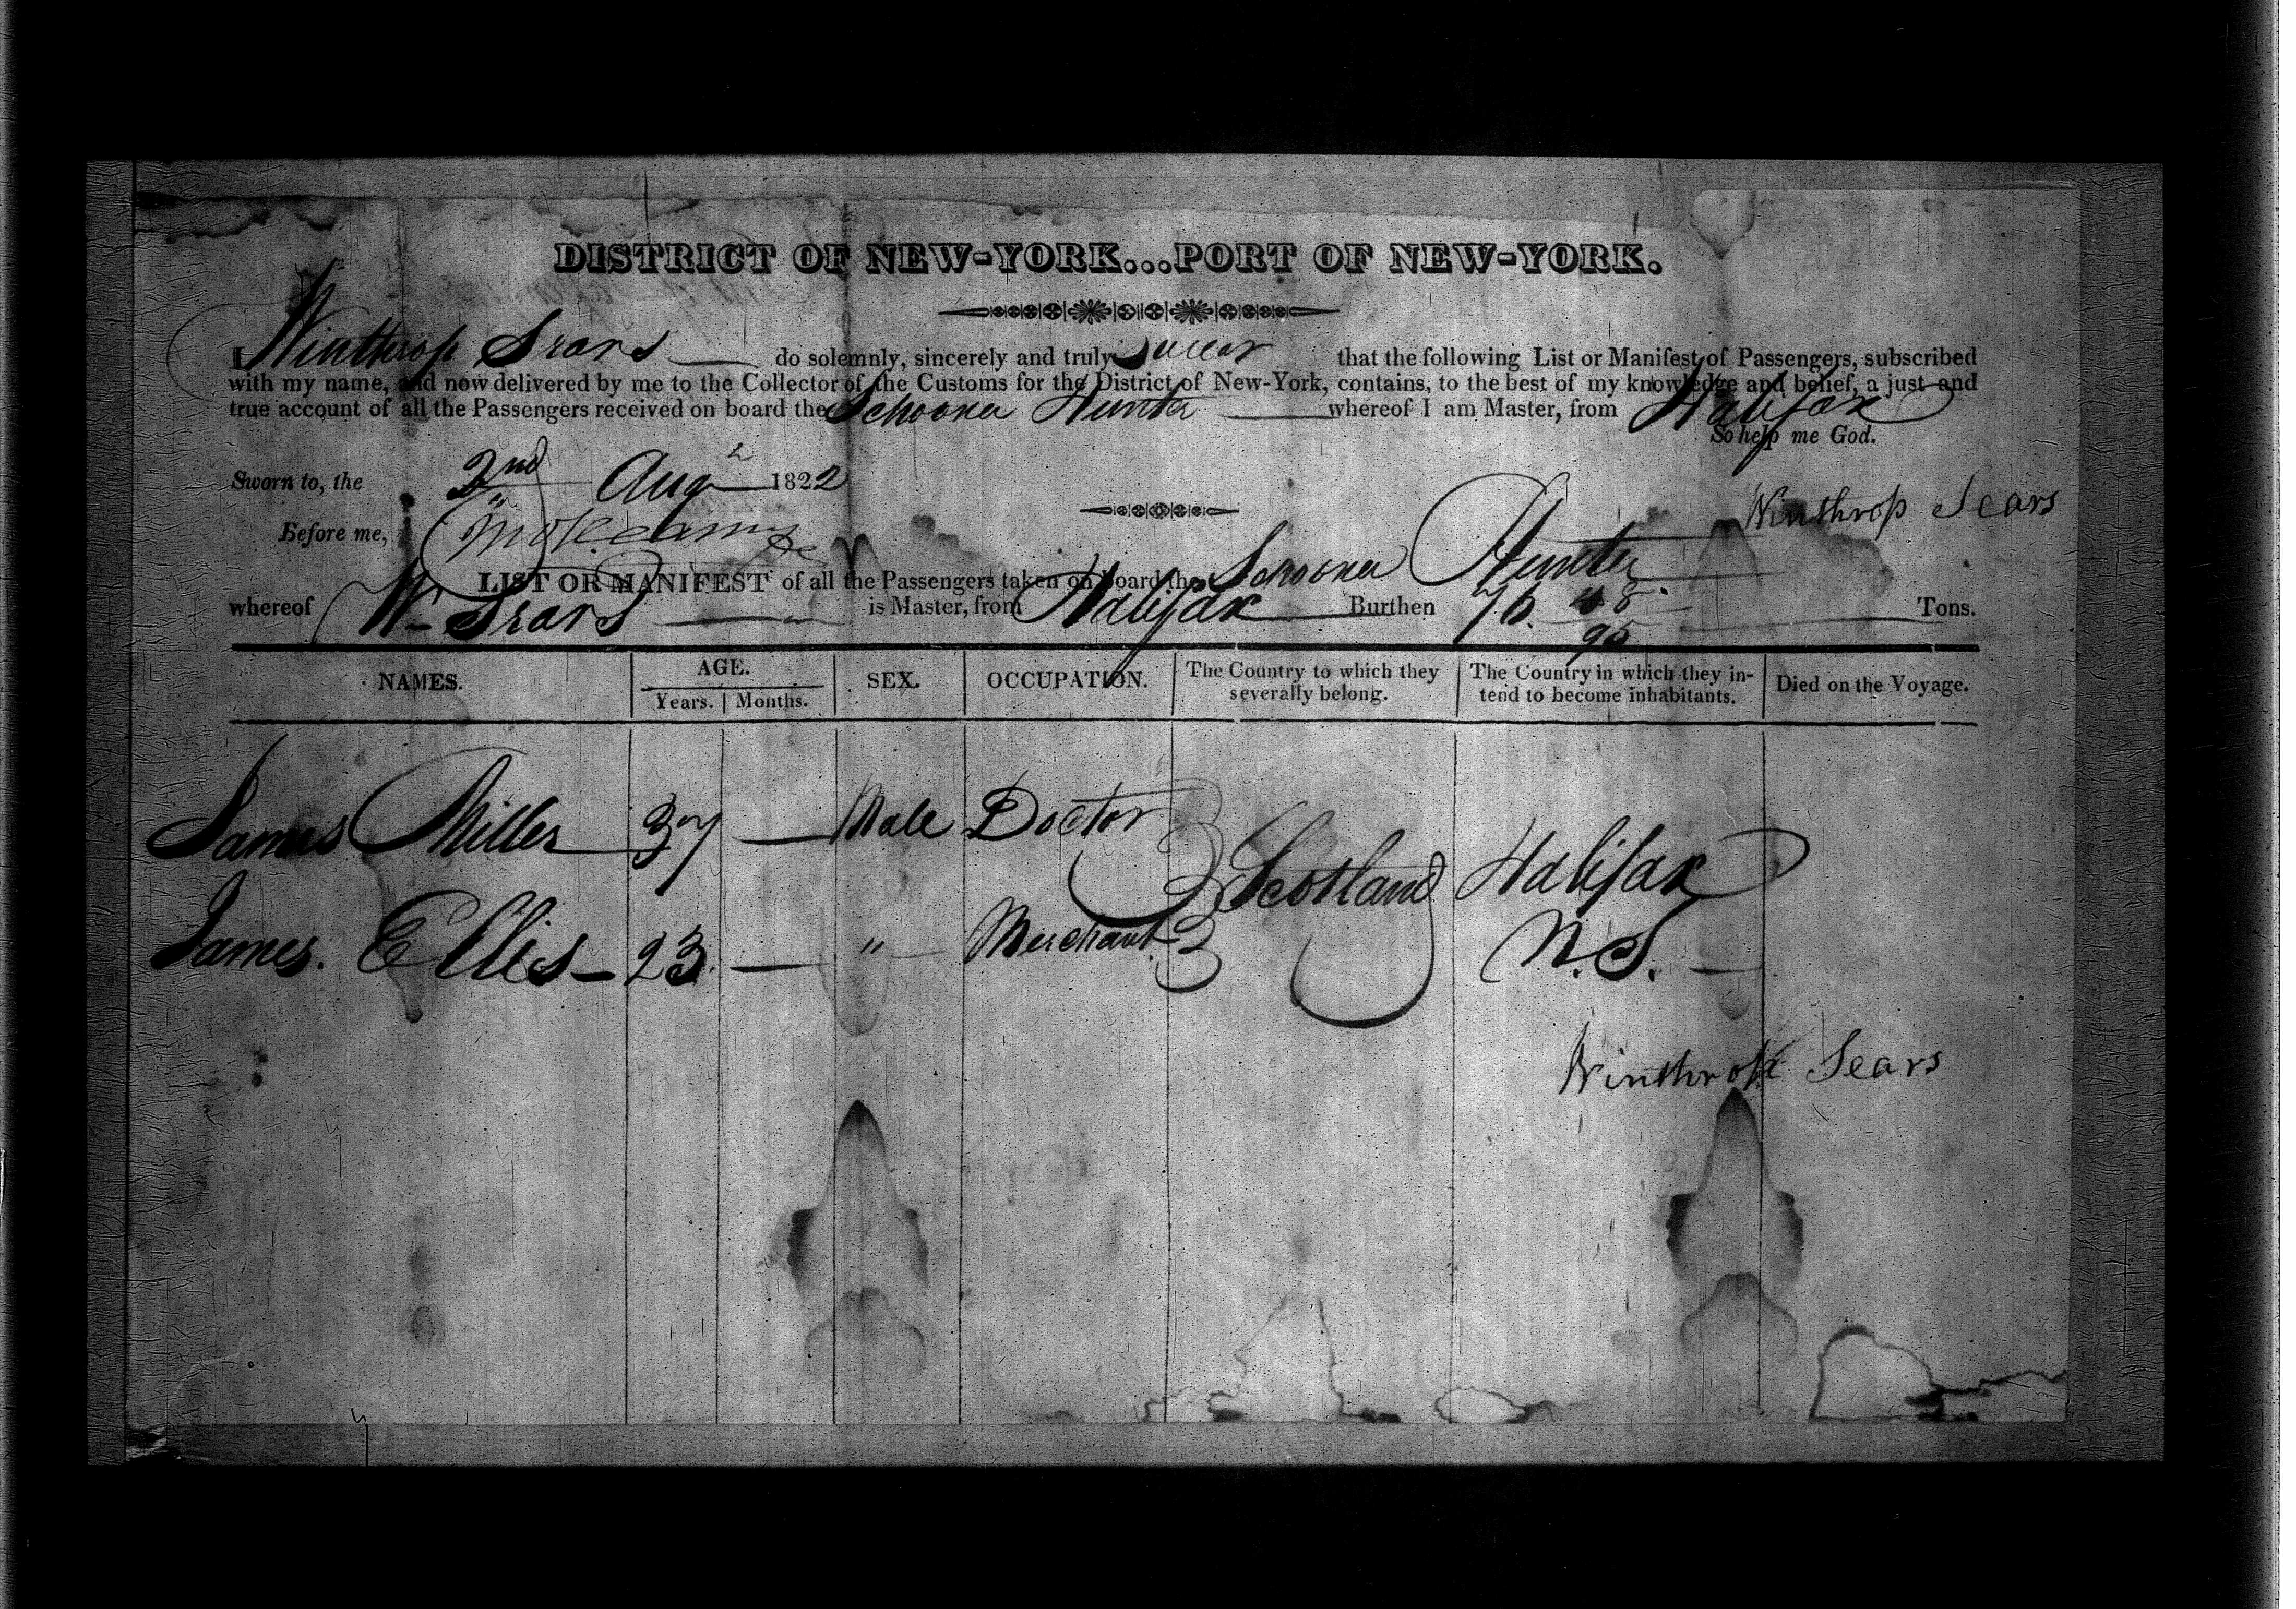 DISTRICT OF NEW-YORK...PORT OF NEW-YORK.
I Winthrop Sears do solemnly, sincerely and truly Swear that the following List or Manifest of Passengers, subscribed
with my name, and now delivered by me to the Collector of the Customs for the District of New-York, contains, to the best of my knowledge and belief, a just and
true account of all the Passengers received on board the Schooner Hunter whereof I am Master, from Halifax
So help me God.
Sworn to, the 2nd Aug 1822
Winthrop Sears
Before me,
LIST OR MANIFEST of all the Passengers taken on board the Schooner Hunter
whereof W Sears is Master, from Halifax Burthen 76. 48 Tons.
95
NAMES. AGE. SEX. OCCUPATION. The Country to which they severally belong. The Country in which they intend to become inhabitants. Died on the Voyage.
Years. Months.
James Miller 37 — Male Doctor
Scotland Halifax
James. Ellis — 23. — " Merchant. N.S. —
Winthrop Sears